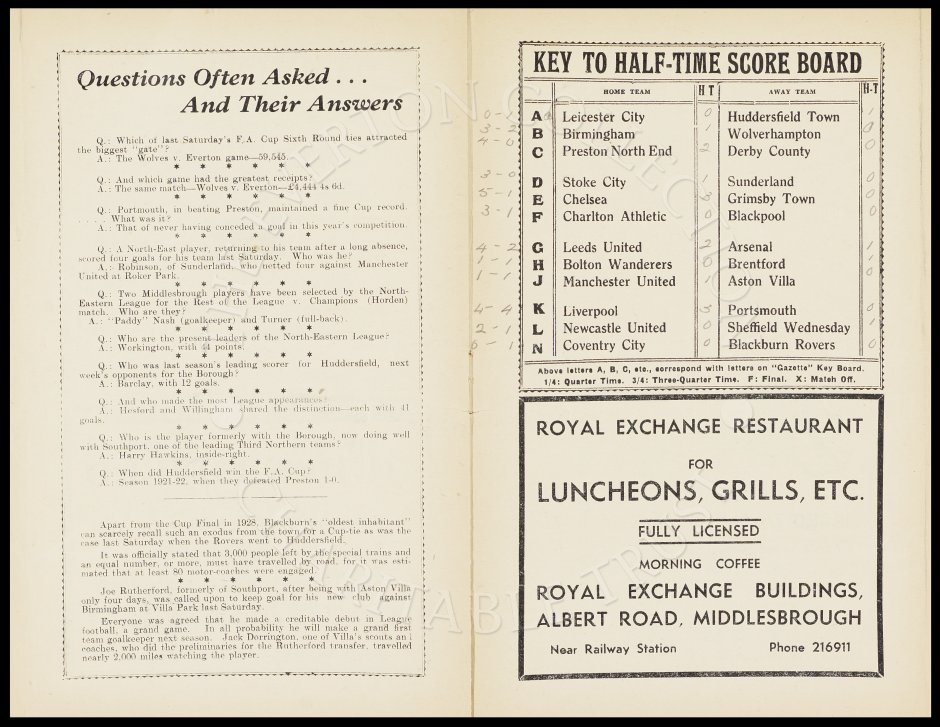 Questions Often Asked . . .
And Their Answers
Q.: Which of last Saturday's F.A. Cup Sixth Round ties attracted
the biggest "gate"?
A.: The Wolves v. Everton game—59,545.
* * * * * *
Q.: And which game had the greatest receipts?
A.: The same match—Wolves v. Everton—£4,444 4s 6d.
* * * * * *
Q.: Portsmouth, in beating Preston, maintained a fine Cup record.
. . . . What was it?
A.: That of never having conceded a goal in this year's competition.
* * * * * *
Q.: A North-East player, returning to his team after a long absence,
scored four goals for his team last Saturday. Who was he?
A.: Robinson, of Sunderland, who netted four against Manchester
United at Roker Park.
* * * * * *
Q.: Two Middlesbrough players have been selected by the North-
Eastern League for the Rest of the League v. Champions (Horden)
match. Who are they?
A.: "Paddy" Nash (goalkeeper) and Turner (full-back).
* * * * * *
Q.: Who are the present leaders of the North-Eastern League?
A.: Workington, with 44 points.
* * * * * *
Q.: Who was last season's leading scorer for Huddersfield, next
week's opponents for the Borough?
A.: Barclay, with 12 goals.
* * * * * *
Q.: And who made the most League appearances?
A.: Hesford and Willingham shared the distinction—each with 41
goals.
* * * * * *
Q.: Who is the player formerly with the Borough, now doing well
with Southport, one of the leading Third Northern teams?
A.: Harry Hawkins, inside-right.
* * * * * *
Q.: When did Huddersfield win the F.A. Cup?
A.: Season 1921-22, when they defeated Preston 1-0.
Apart from the Cup Final in 1928, Blackburn's "oldest inhabitant"
can scarcely recall such an exodus from the town for a Cup-tie as was the
case last Saturday when the Rovers went to Huddersfield.
It was officially stated that 3,000 people left by the special trains and
an equal number, or more, must have travelled by road, for it was esti-
mated that at least 80 motor-coaches were engaged.
* * * * * *
Joe Rutherford, formerly of Southport, after being with Aston Villa
only four days, was called upon to keep goal for his new club against
Birmingham at Villa Park last Saturday.
Everyone was agreed that he made a creditable debut in League
football, a grand game. In all probability he will make a grand first
team goalkeeper next season. Jack Dorrington, one of Villa's scouts and
coaches, who did the preliminaries for the Rutherford transfer, travelled
nearly 2,000 miles watching the player.
KEY TO HALF-TIME SCORE BOARD
HOME TEAM H T AWAY TEAM H-T
A Leicester City Huddersfield Town
3-2 B Birmingham Wolverhampton
4-0 C Preston North End Derby County
3-0 D Stoke City Sunderland
5-1 E Chelsea Grimsby Town
3-1 F Charlton Athletic Blackpool
4-2 G Leeds United Arsenal
1-1 H Bolton Wanderers Brentford
1-1 J Manchester United Aston Villa
4-4 K Liverpool Portsmouth
2-1 L Newcastle United Sheffield Wednesday
N Coventry City Blackburn Rovers
Above letters A, B, C, etc., correspond with letters on "Gazette" Key Board.
1/4: Quarter Time. 3/4: Three-Quarter Time. F: Final. X: Match Off.
ROYAL EXCHANGE RESTAURANT
FOR
LUNCHEONS, GRILLS, ETC.
FULLY LICENSED
MORNING COFFEE
ROYAL EXCHANGE BUILDINGS,
ALBERT ROAD, MIDDLESBROUGH
Near Railway Station Phone 216911